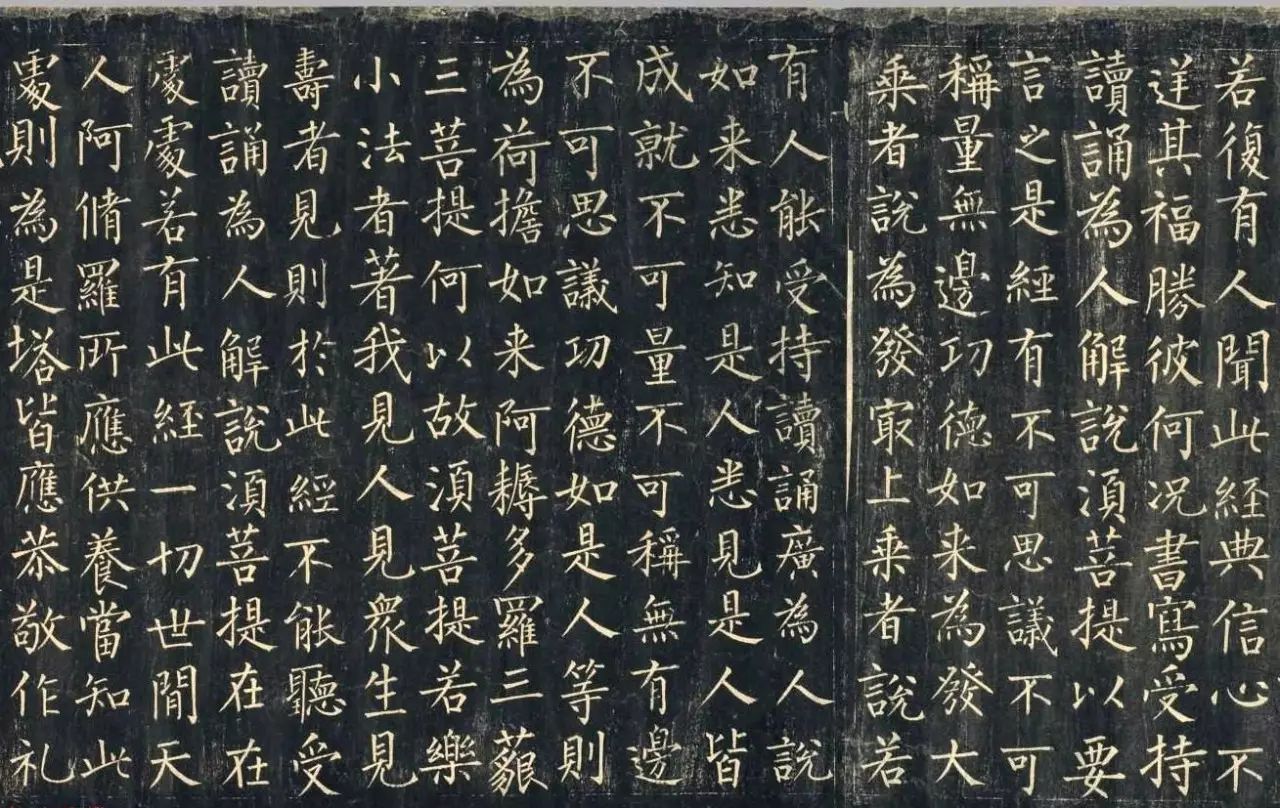 若復有人聞此經典信心不
逆其福勝彼何况書寫受持
讀誦為人解說湏菩提以要
言之是經有不可思議不可
稱量無邊功德如来為發大
乗者說為發冣上乗者說若
有人能受持讀誦廣為人說
如来悉知是人悉見是人皆
成就不可量不可稱無有邊
不可思議功德如是人等則
為荷擔如来阿耨多羅三藐
三菩提何以故湏菩提若樂
小法者著我見人見衆生見
壽者見則於此經不能聽受
讀誦為人解說湏菩提在在
處處若有此經一切世間天
人阿脩羅所應供養當知此
處則為是塔皆應恭敬作礼